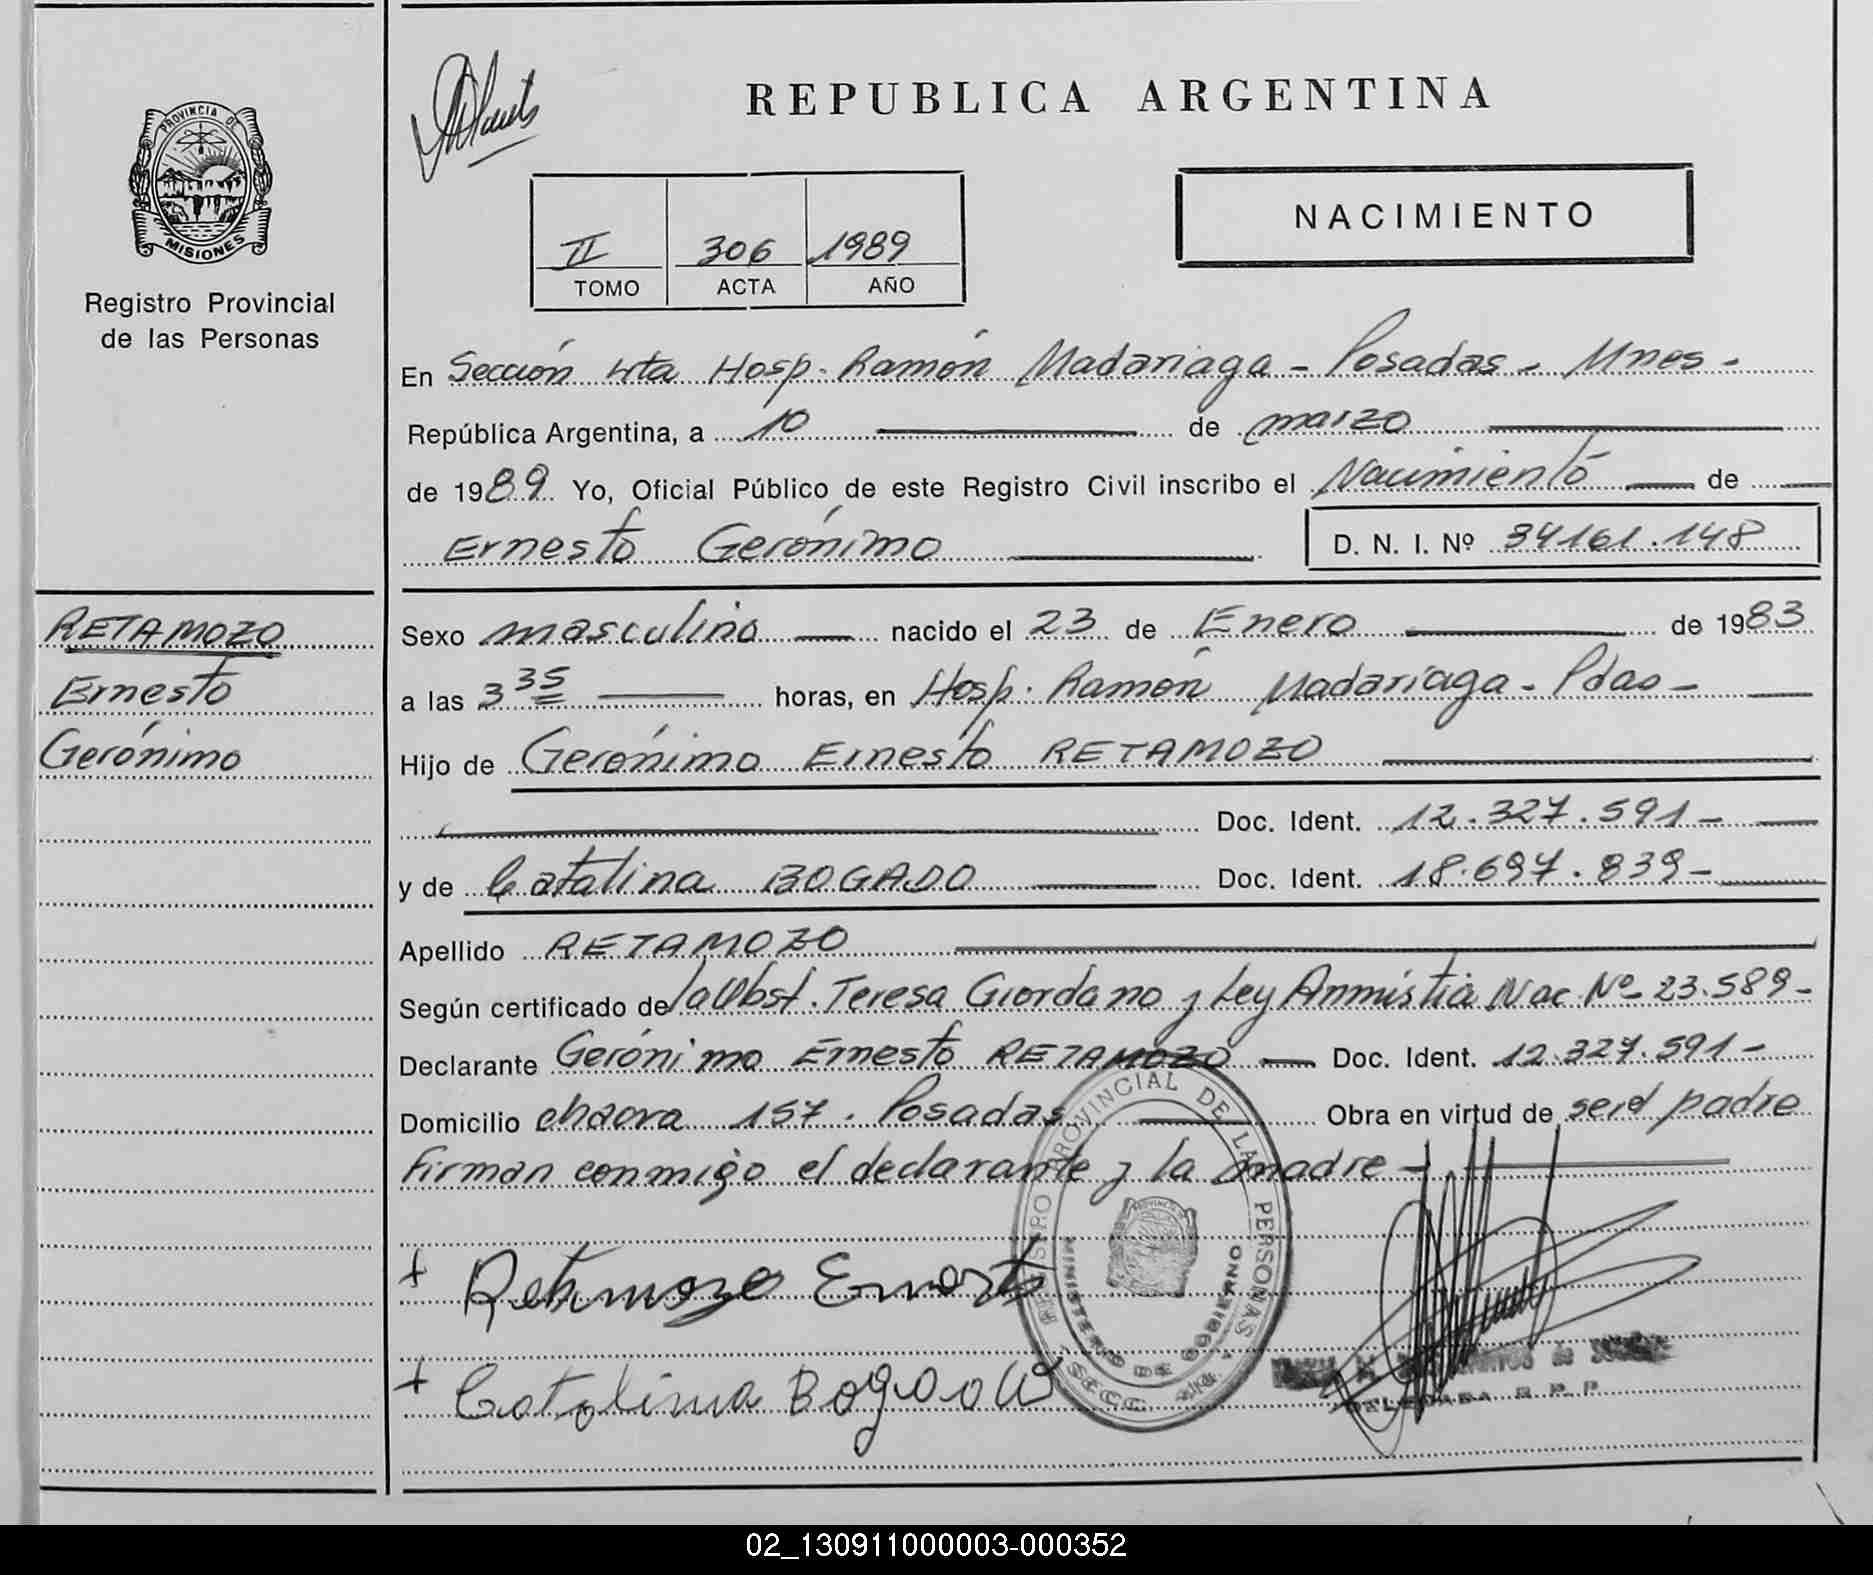 PROVINCIA DE
MISIONES
Registro Provincial
de las Personas
RETAMOZO
Ernesto
Gerónimo
REPUBLICA ARGENTINA
II 306 1989
TOMO ACTA AÑO
NACIMIENTO
En Sección 4ta Hosp. Ramón Madariaga - Posadas - Mnes -
República Argentina, a 10 de marzo
de 1989 Yo, Oficial Público de este Registro Civil inscribo el Nacimiento de
Ernesto Gerónimo D. N. I. Nº 34161.148
Sexo masculino nacido el 23 de Enero de 1983
a las 3 35 horas, en Hosp. Ramón Madariaga - Pdas -
Hijo de Gerónimo Ernesto RETAMOZO
Doc. Ident. 12.327.591 -
y de Catalina BOGADO Doc. Ident. 18.697.839 -
Apellido RETAMOZO
Según certificado de la Obst. Teresa Giordano y Ley Anmistia Nac. Nº 23.589 -
Declarante Gerónimo Ernesto RETAMOZO Doc. Ident. 12.327.591 -
Domicilio chacra 157. Posadas Obra en virtud de ser el padre
Firman conmigo el declarante y la madre -
Retamozo Ernesto
Catalina Bogado
REGISTRO PROVINCIAL DE LAS PERSONAS
MINISTERIO DE GOBIERNO
SECC. 4ta.
DELEGADA R. P. P.
02_130911000003-000352